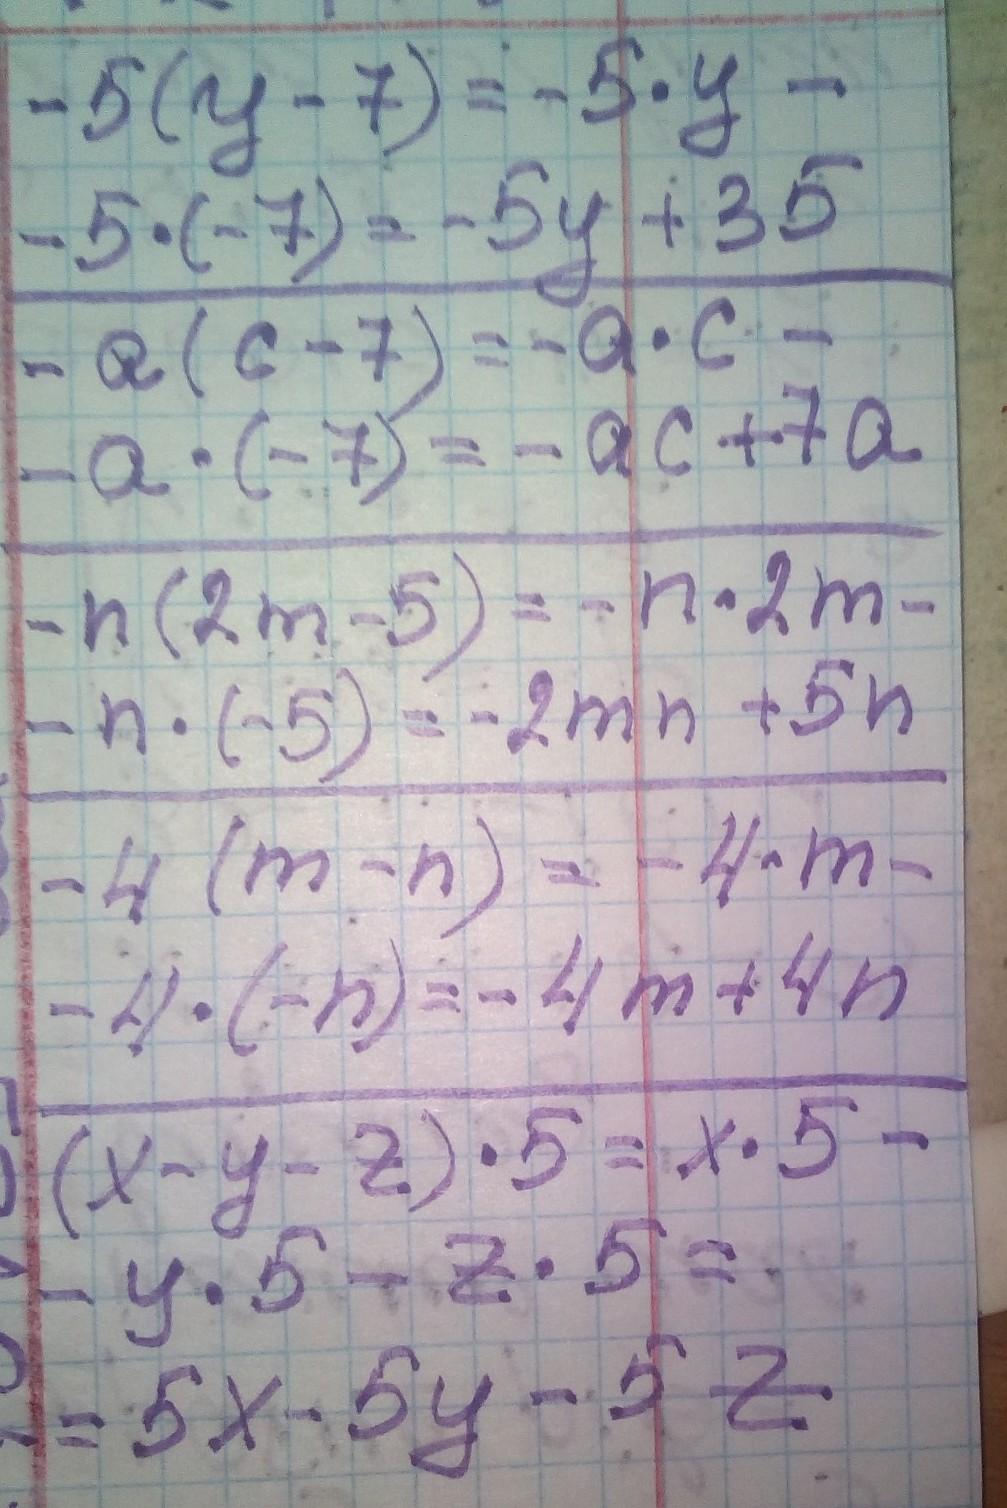 -5(y-7)=-5·y-
-5·(-7)=-5y+35
-a(c-7)=-a·c-
-a·(-7)=-ac+7a
-n(2m-5)=-n·2m-
-n·(-5)=-2mn+5n
-4(m-n)=-4·m-
-4·(-n)=-4m+4n
(x-y-z)·5=x·5-
-y·5-z·5=
=5x-5y-5z